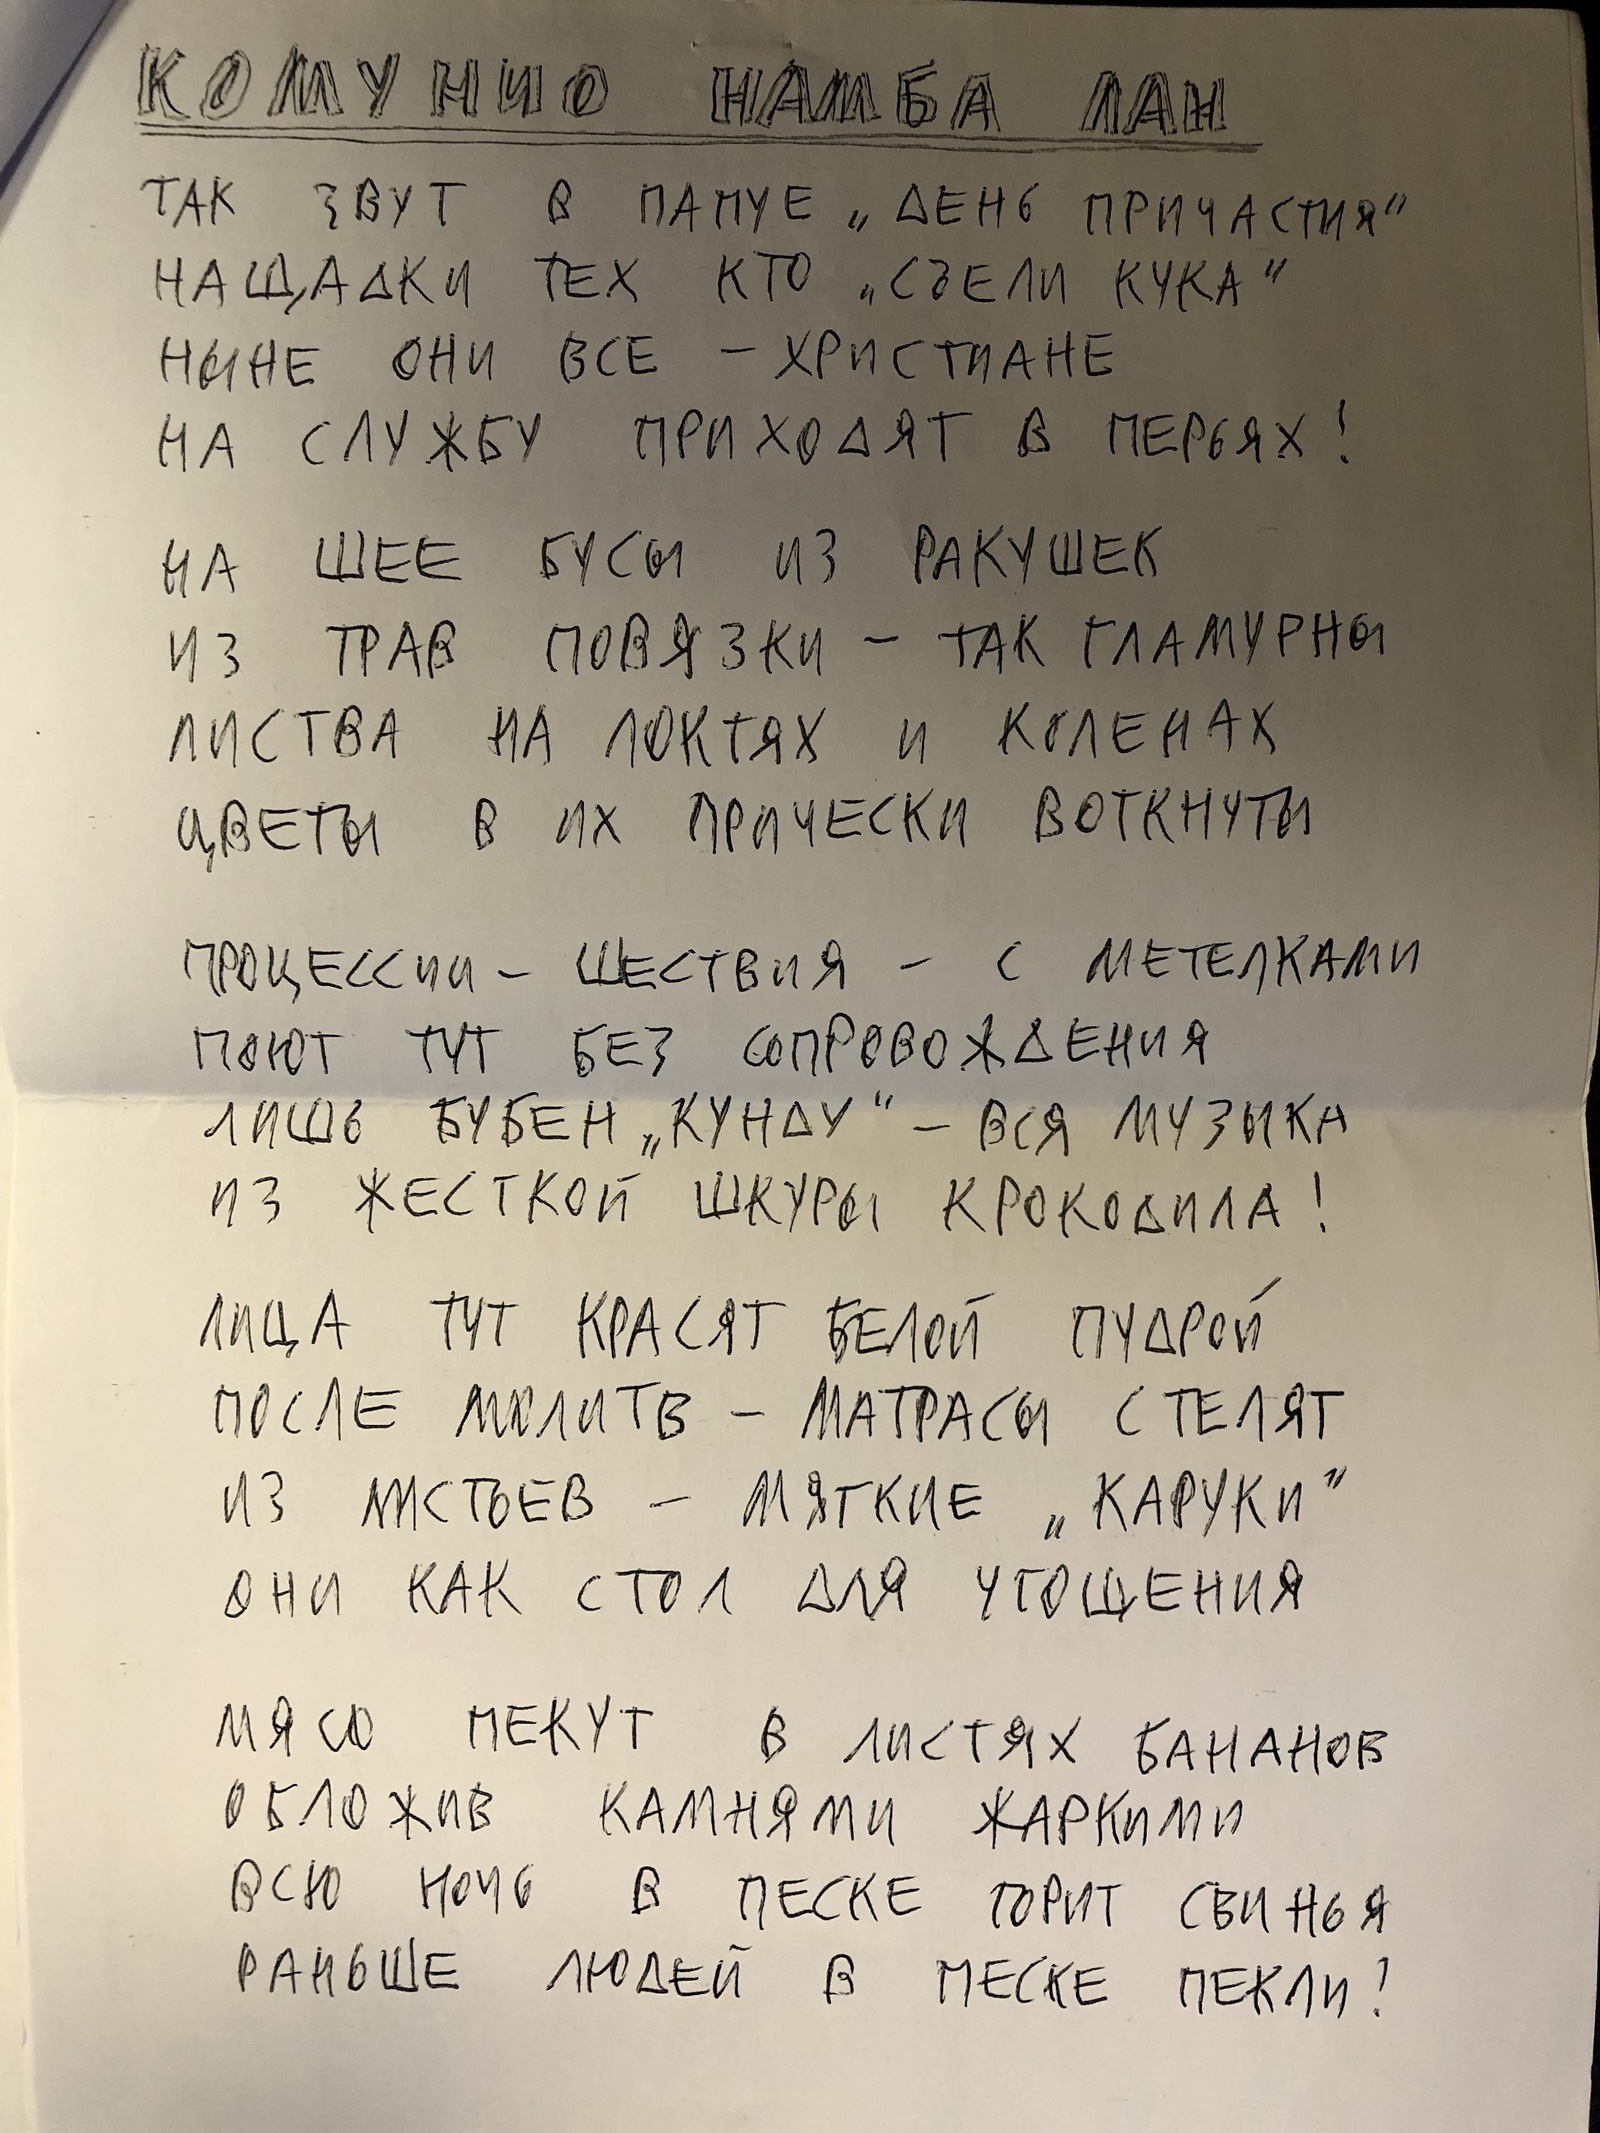 КОМУНИО НАМБА ЛАН
ТАК ЗВУТ В ПАПУЕ „ДЕНЬ ПРИЧАСТИЯ“
НАЩАДКИ ТЕХ КТО „СЪЕЛИ КУКА“
НЫНЕ ОНИ ВСЕ – ХРИСТИАНЕ
НА СЛУЖБУ ПРИХОДЯТ В ПЕРЬЯХ!
НА ШЕЕ БУСЫ ИЗ РАКУШЕК
ИЗ ТРАВ ПОВЯЗКИ – ТАК ГЛАМУРНЫ
ЛИСТВА НА ЛОКТЯХ И КОЛЕНАХ
ЦВЕТЫ В ИХ ПРИЧЕСКИ ВОТКНУТЫ
ПРОЦЕССИИ – ШЕСТВИЯ – С МЕТЕЛКАМИ
ПОЮТ ТУТ БЕЗ СОПРОВОЖДЕНИЯ
ЛИШЬ БУБЕН „КУНДУ“ – ВСЯ МУЗЫКА
ИЗ ЖЕСТКОЙ ШКУРЫ КРОКОДИЛА!
ЛИЦА ТУТ КРАСЯТ БЕЛОЙ ПУДРОЙ
ПОСЛЕ МОЛИТВ – МАТРАСЫ СТЕЛЯТ
ИЗ ЛИСТЬЕВ – МЯГКИЕ „КАРУКИ“
ОНИ КАК СТОЛ ДЛЯ УГОЩЕНИЯ
МЯСО ПЕКУТ В ЛИСТЯХ БАНАНОВ
ОБЛОЖИВ КАМНЯМИ ЖАРКИМИ
ВСЮ НОЧЬ В ПЕСКЕ ГОРИТ СВИНЬЯ
РАНЬШЕ ЛЮДЕЙ В ПЕСКЕ ПЕКЛИ!